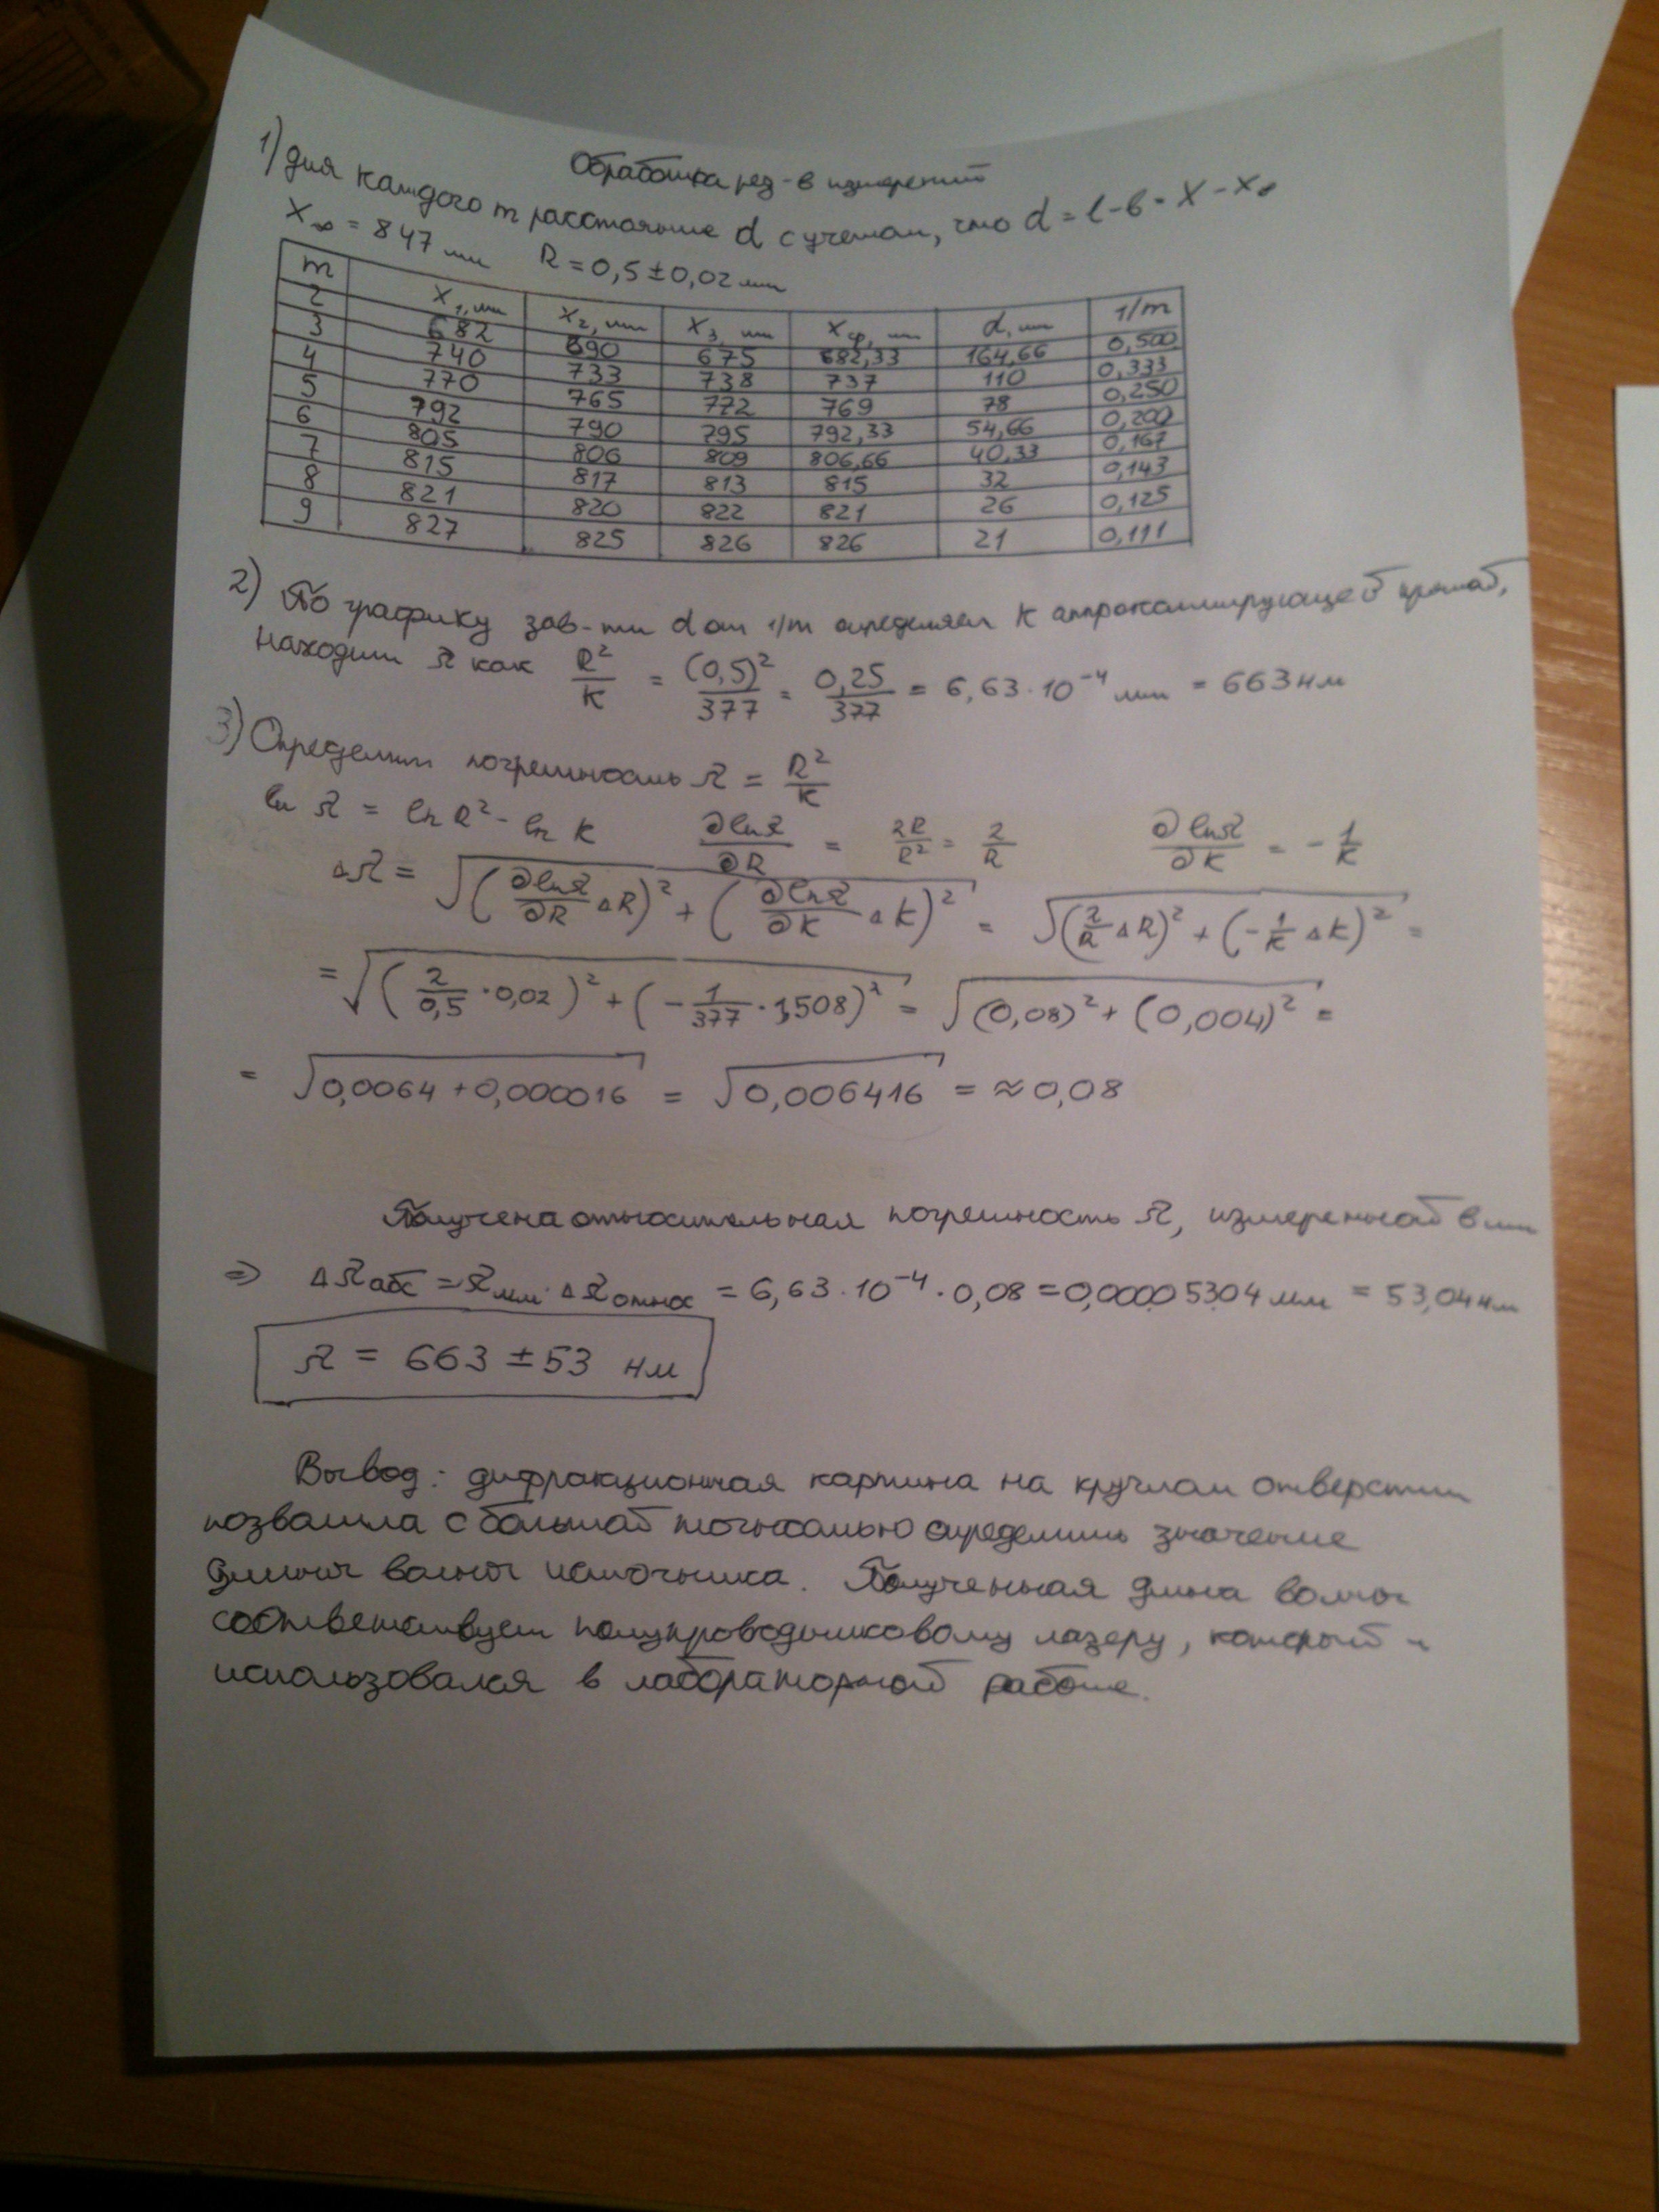 Обработка рез-в измерений
1) Для каждого m расстояние d с учетом, что d = l - b = X - X∞
X∞ = 847 мм R = 0,5 ± 0,02 мм
m X1, мм X2, мм X3, мм Xср, мм d, мм 1/m
2 682 690 675 682,33 164,66 0,500
3 740 733 738 737 110 0,333
4 770 765 772 769 78 0,250
5 792 790 795 792,33 54,66 0,200
6 805 806 809 806,66 40,33 0,167
7 815 817 813 815 32 0,143
8 821 820 822 821 26 0,125
9 827 825 826 826 21 0,111
2) По графику зав-ти d от 1/m определяем K аппроксимирующей прямой,
находим λ как R²/K = (0,5)²/377 = 0,25/377 = 6,63·10⁻⁴ мм = 663 нм
3) Определим погрешность λ = R²/K
ln λ = ln R² - ln K ∂lnλ/∂R = 2R/R² = 2/R ∂lnλ/∂K = -1/K
Δλ = √((∂lnλ/∂R ΔR)² + (∂lnλ/∂K ΔK)²) = √((2/R ΔR)² + (-1/K ΔK)²) =
= √((2/0,5 · 0,02)² + (-1/377 · 1,508)²) = √((0,08)² + (0,004)²) =
= √(0,0064 + 0,000016) = √(0,006416) = ≈ 0,08
Получена относительная погрешность λ, измеренной в мм
⇒ Δλабс = λмм · Δλотнос = 6,63·10⁻⁴ · 0,08 = 0,00005304 мм = 53,04 нм
λ = 663 ± 53 нм
Вывод: дифракционная картина на круглом отверстии
позволила с большой точностью определить значение
длины волны источника. Полученная длина волны
соответствует полупроводниковому лазеру, который и
использовался в лабораторной работе.